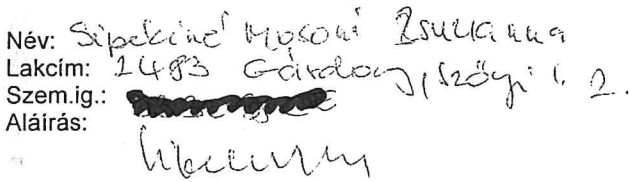 Név: Sipekiné Mosoni Zsuzsanna
Lakcím: 2483 Gárdony, Szőgyi u. 2.
Szem.ig.:
Aláírás: